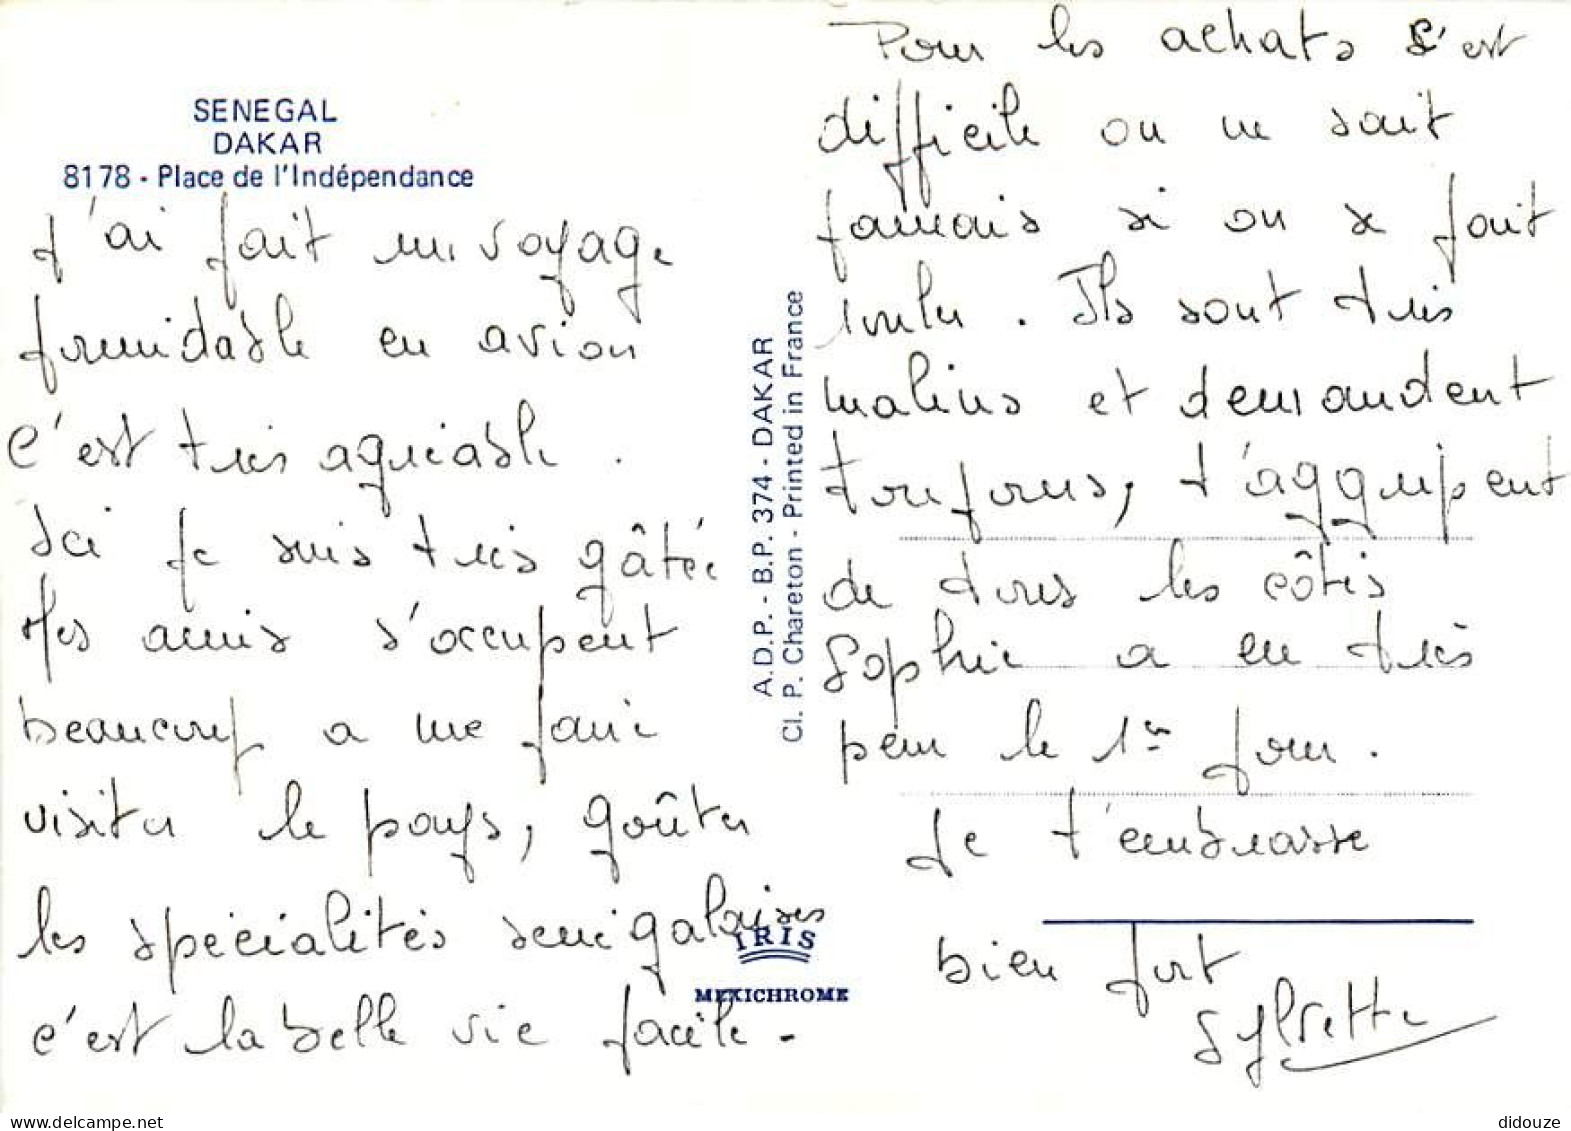 SENEGAL
DAKAR
8178 - Place de l'Indépendance
J'ai fait un voyage
formidable en avion
C'est très agréable.
Ici je suis très gâtée
Mes amis s'occupent
beaucoup a me faire
visiter le pays, goûter
les spécialités senégalaises
c'est la belle vie facile -
A.D.P. - B.P. 374 - DAKAR
Cl. P. Chareton - Printed in France
IRIS
MEXICHROME
Pour les achats c'est
difficile on ne sait
jamais si on se fait
rouler. Ils sont très
malins et demandent
toujours, t'aggripent
de tous les côtés
Sophie a eu très
peur le 1er jour.
Je t'embrasse
bien fort
Sylvette
didouze